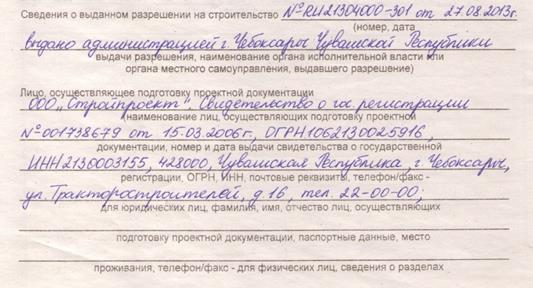 Сведения о выданном разрешении на строительство №RU21304000-301 от 27.08.2013г.
(номер, дата
выдано администрацией г. Чебоксары Чувашской Республики
выдачи разрешения, наименование органа исполнительной власти или
органа местного самоуправления, выдавшего разрешение)
Лицо, осуществляющее подготовку проектной документации
ООО „Стройпроект". Свидетельство о гос. регистрации
(наименование лиц, осуществляющих подготовку проектной
№001738679 от 15.03.2006г., ОГРН1062130025916,
документации, номер и дата выдачи свидетельства о государственной
ИНН2130003155, 428000, Чувашская Республика г. Чебоксары,
регистрации, ОГРН, ИНН, почтовые реквизиты, телефон/факс -
ул. Тракторостроителей, д.16, тел. 22-00-00;
для юридических лиц, фамилия, имя, отчество лиц, осуществляющих
подготовку проектной документации, паспортные данные, место
проживания, телефон/факс - для физических лиц, сведения о разделах